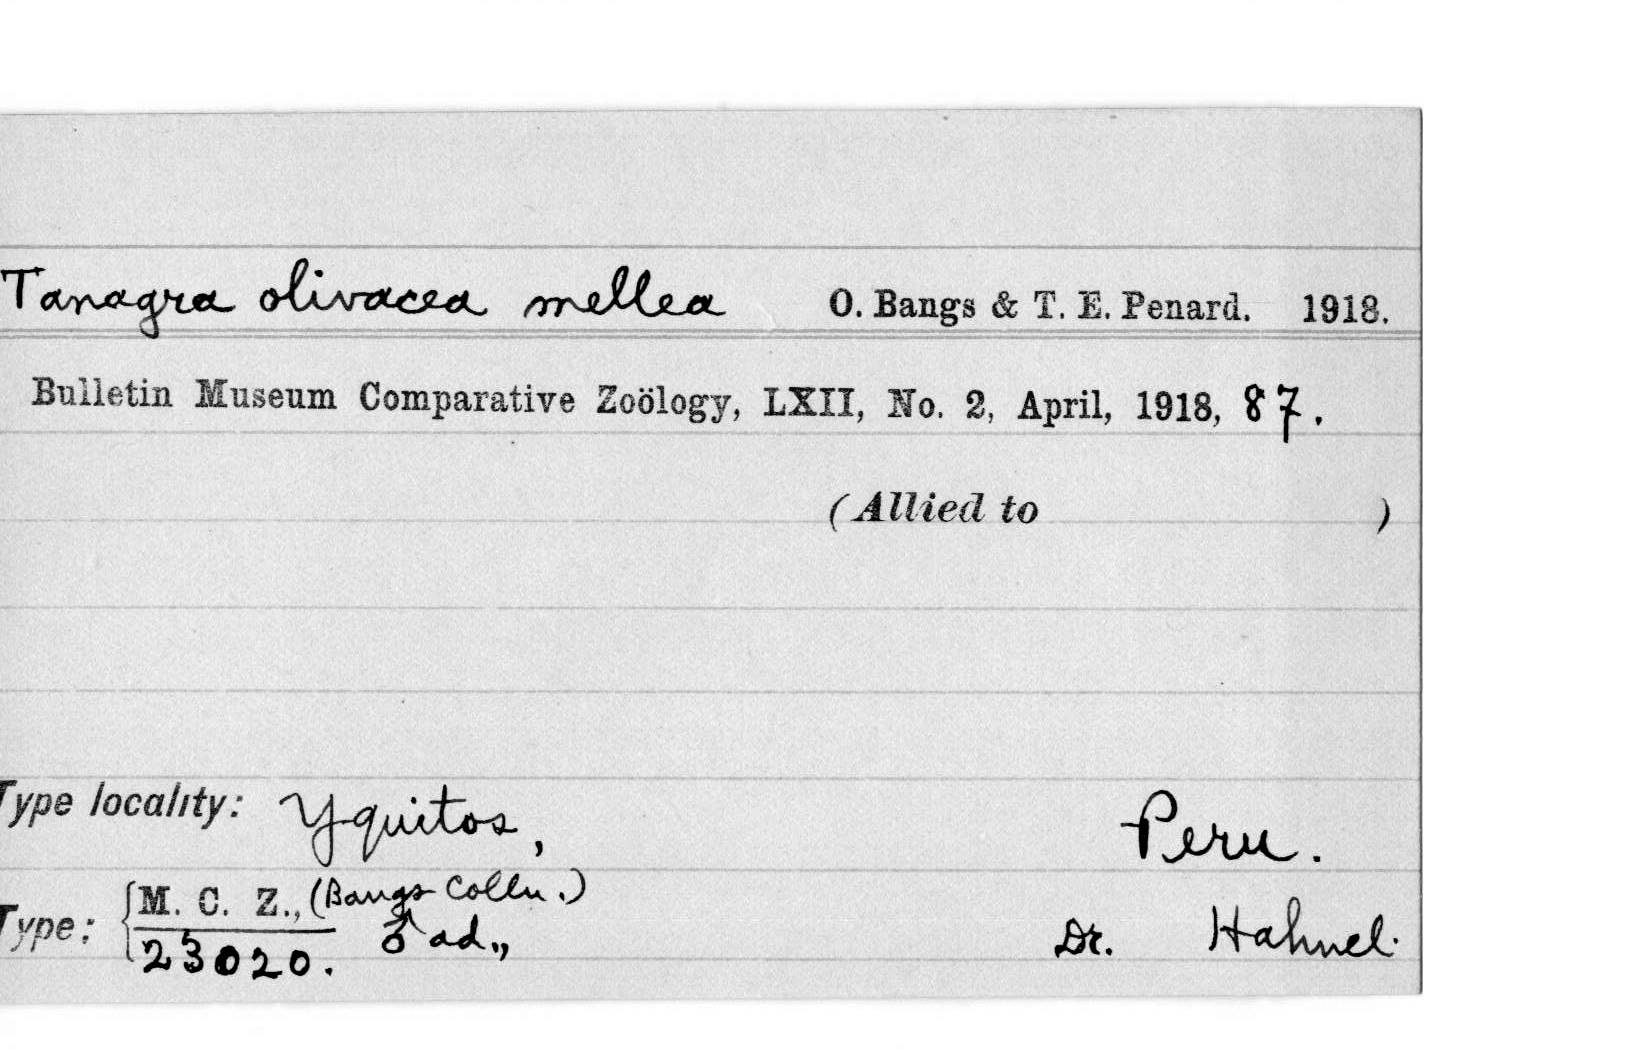 Tanagra olivacea mellea O. Bangs & T. E. Penard. 1918.
Bulletin Museum Comparative Zoölogy, LXII, No. 2, April, 1918, 87.
(Allied to )
Type locality: Yquitos, Peru.
Type: M. C. Z., (Bangs Colln.)
23020. ♂ ad., Dr. Hahnel.